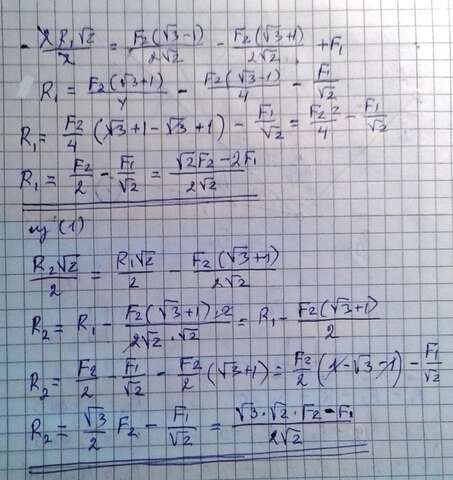 - 2R₁√2/2 = F₂(√3-1)/2√2 - F₂(√3+1)/2√2 + F₁
R₁ = F₂(√3+1)/4 - F₂(√3-1)/4 - F₁/√2
R₁ = F₂/4 (√3+1-√3+1) - F₁/√2 = F₂·2/4 - F₁/√2
R₁ = F₂/2 - F₁/√2 = √2F₂-2F₁/2√2
(1)
R₂√2/2 = R₁√2/2 - F₂(√3+1)/2√2
R₂ = R₁ - F₂(√3+1)·2/2√2·√2 = R₁ - F₂(√3+1)/2
R₂ = F₂/2 - F₁/√2 - F₂/2 (√3+1) = F₂/2 (1-√3-1) - F₁/√2
R₂ = √3/2 F₂ - F₁/√2 = √3·√2·F₂-F₁/2√2